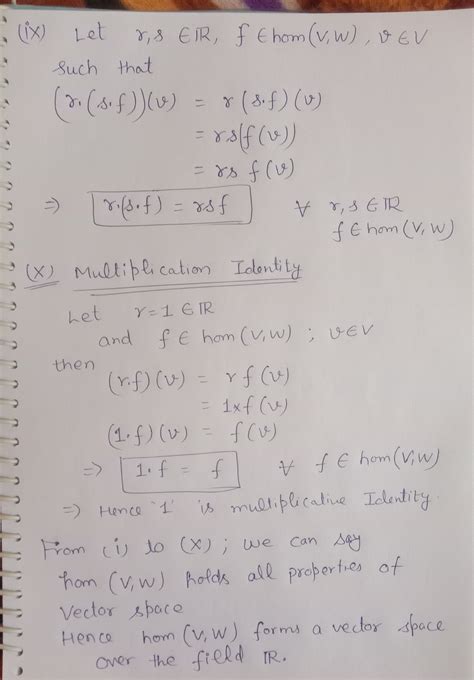 (ix) Let r,s ∈ IR, f ∈ hom(V,W), v ∈ V
such that
(r.(s.f))(v) = r(s.f)(v)
= rs(f(v))
= rs f(v)
⇒ r.(s.f) = rsf ∀ r,s ∈ IR
f ∈ hom(V,W)
(X) Multiplication Identity
Let r=1 ∈ IR
and f ∈ hom(V,W) ; v∈V
then
(r.f)(v) = r f(v)
= 1×f(v)
(1.f)(v) = f(v)
⇒ 1.f = f ∀ f ∈ hom(V,W)
⇒ Hence '1' is multiplicative Identity.
From (i) to (X) ; we can say
hom (V,W) holds all properties of
vector space
Hence hom(V,W) forms a vector space
over the field IR.